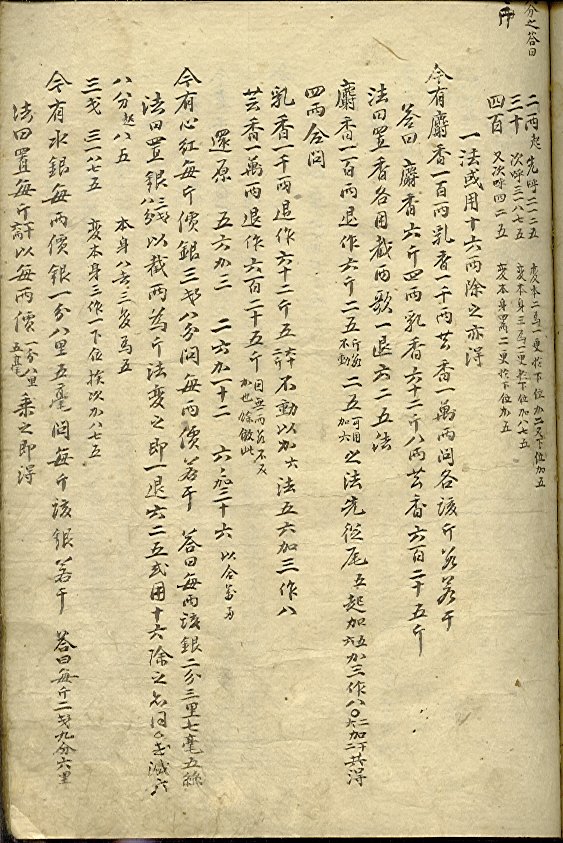 分之答曰
二兩起 先呼二一二五 變本二為一更於下位加二又下位加五
三十 次呼三一八七五 變本身三為一更於下位加八七五
四百 又次呼四二五 變本身四為二更於下位加五
一法或用十六兩除之亦得
今有麝香一百兩乳香一千兩芸香一萬兩問各該斤若干
答曰 麝香六斤四兩乳香六十二斤八兩芸香六百二十五斤
法曰置香各用截兩歌一退六二五法
麝香一百兩退作六斤二五 不動 二五 加六 之法先從尾五起加五六加三作八〇 加二 共得
四兩合問
乳香一千兩退作六十二斤五 不動以加六法五六加三作八
芸香一萬兩退作六百二十五斤 因無兩故不必加也餘倣此
還原 五六加三 二六加一十二 六六加三十六 以合萬兩
今有心紅每斤價銀三錢八分問每兩價若干 答曰每兩該銀二分三里七毫五絲
法曰置銀 以截兩為斤法變之即一退六二五或用十六除之亦同
八分起八五 本身八去三變為五
三錢 三一八七五 變本身三作一下位挨以加八七五
今有水銀每兩價銀一分八里五毫問每斤該銀若干 答曰每斤二錢九分六里
法曰置每斤 以每兩價 一分八里五毫 乘之即得